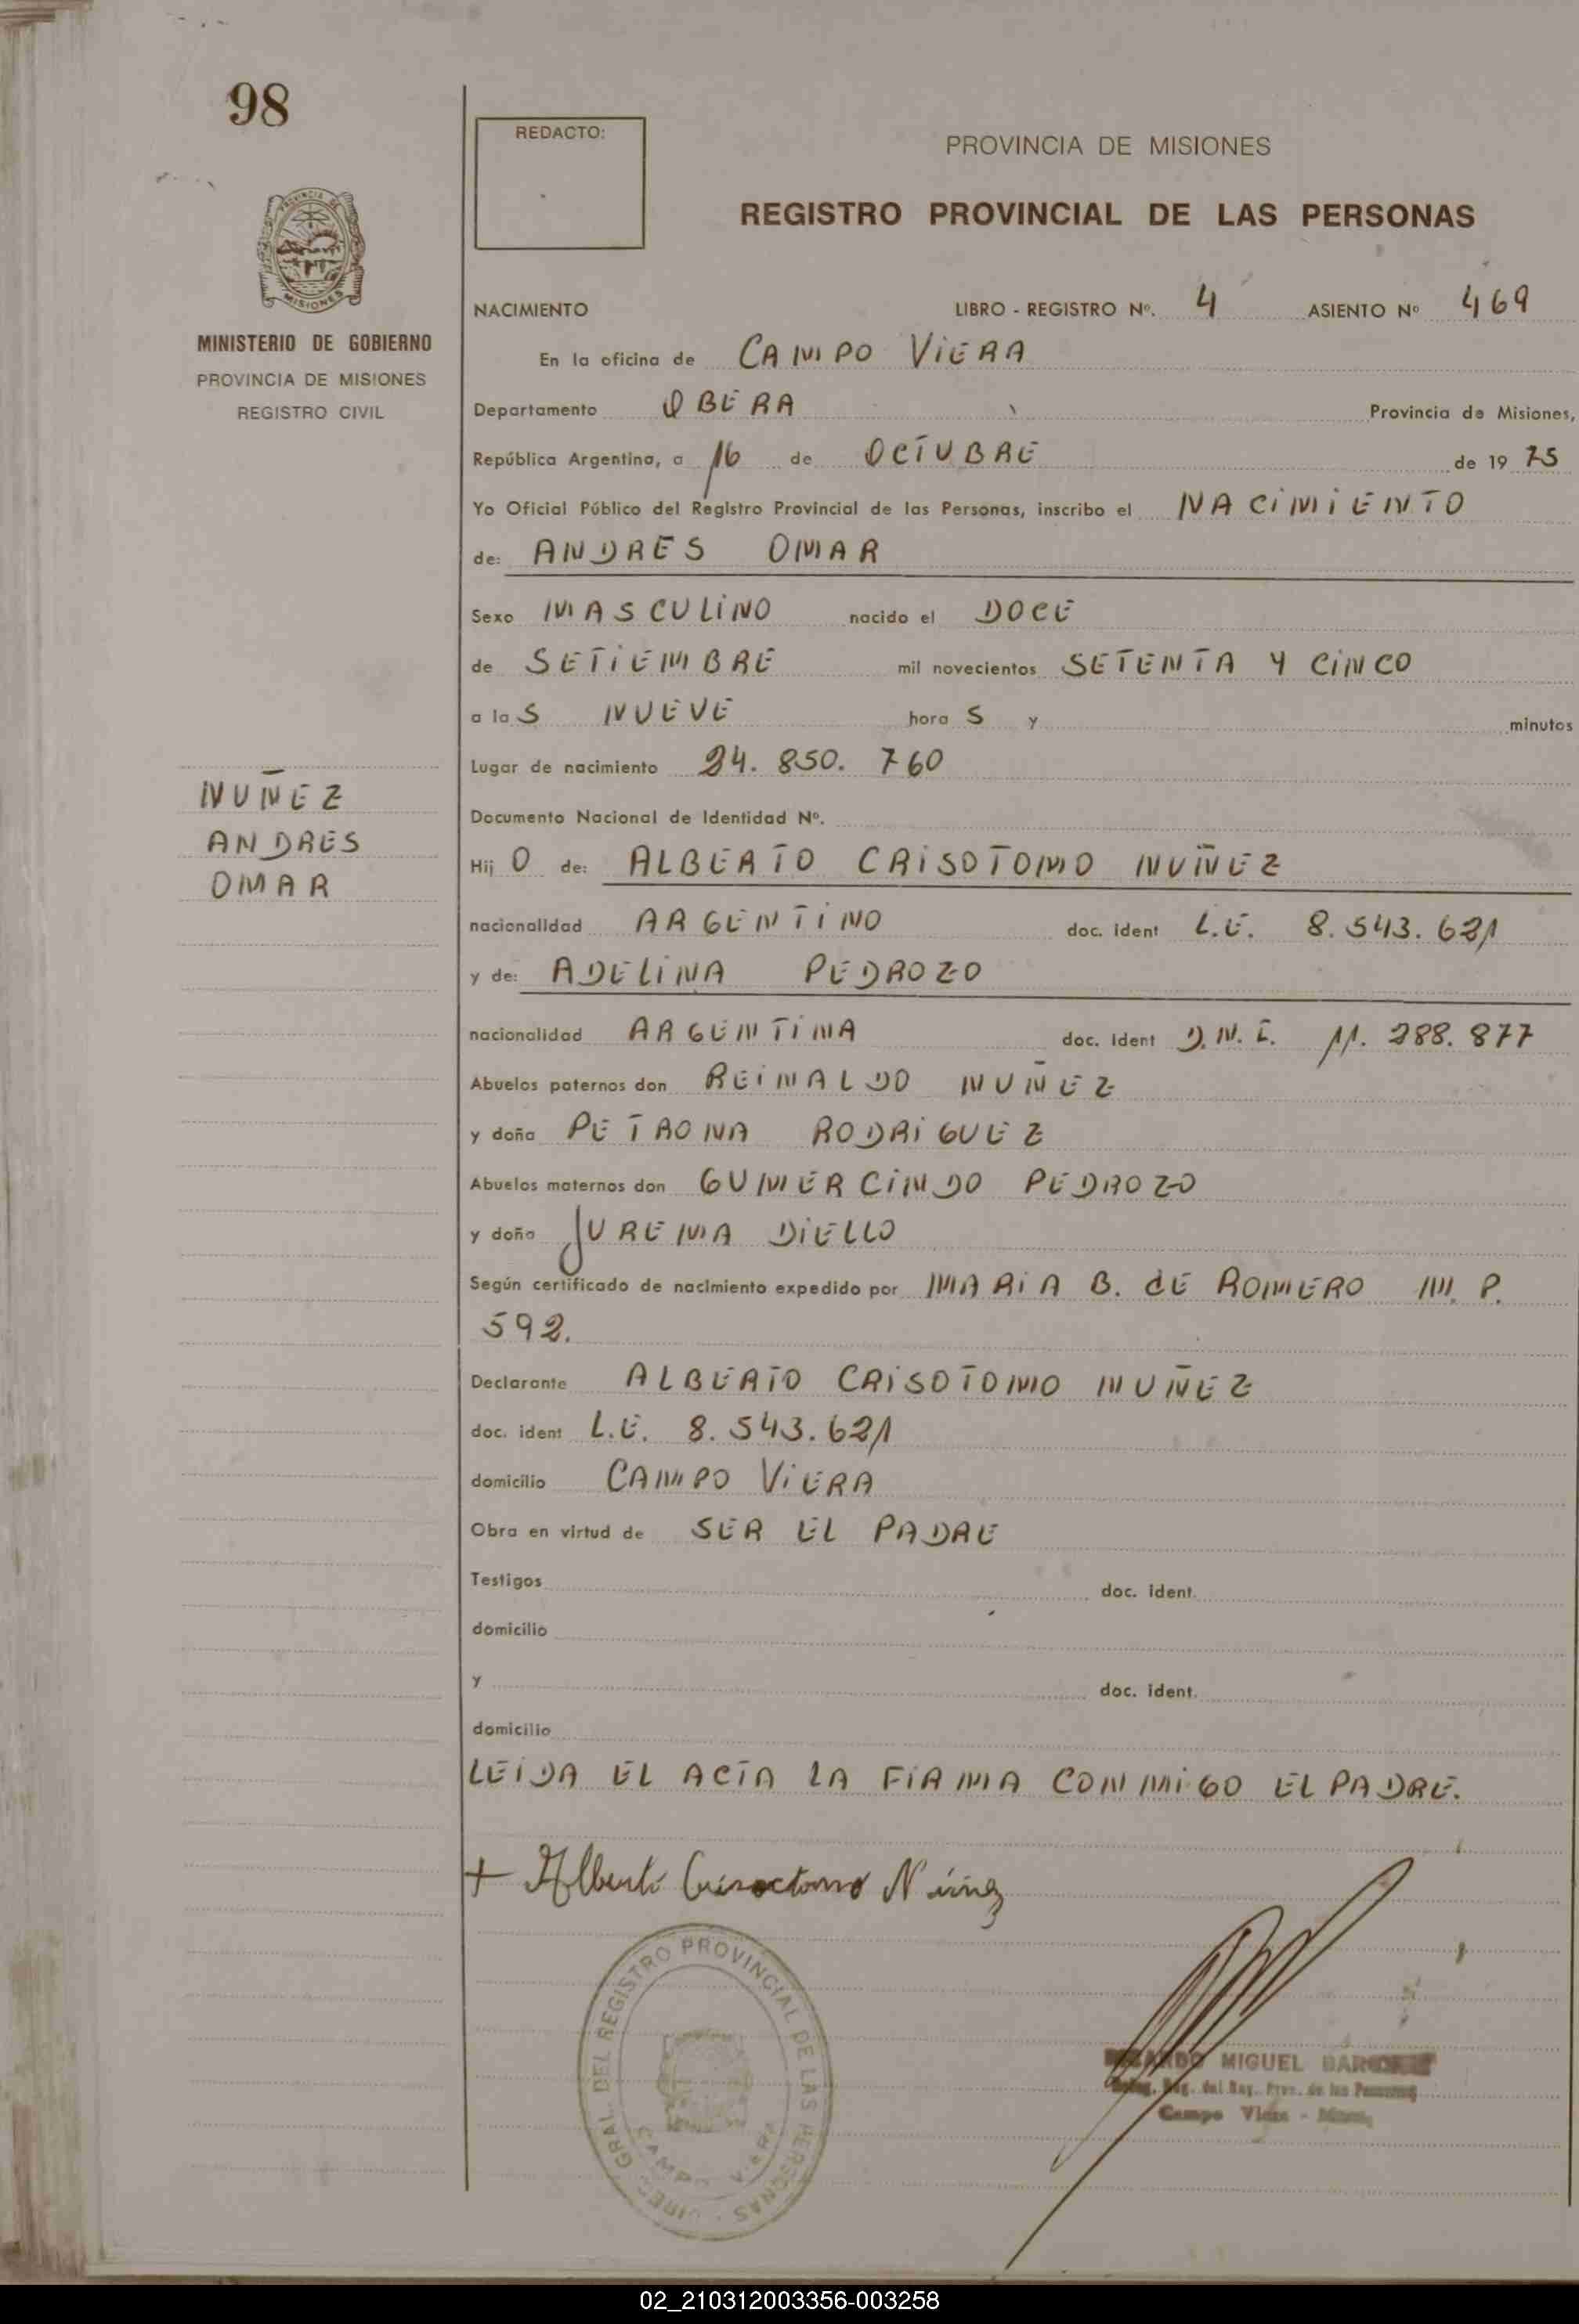 98
REDACTO:
PROVINCIA DE MISIONES
REGISTRO PROVINCIAL DE LAS PERSONAS
PROVINCIA DE
MISIONES
MINISTERIO DE GOBIERNO
PROVINCIA DE MISIONES
REGISTRO CIVIL
NACIMIENTO LIBRO - REGISTRO Nº. 4 ASIENTO Nº 469
En la oficina de CAMPO ViERA
Departamento OBERA Provincia de Misiones,
República Argentina, a 16 de OCTUBRE de 19 75
Yo Oficial Público del Registro Provincial de las Personas, inscribo el NACiMiENTO
de: ANDRES OMAR
Sexo MASCULiNO nacido el DOCE
de SETiEMBRE mil novecientos SETENTA Y CiNCO
a la S NUEVE hora S y minutos
Lugar de nacimiento 24. 850. 760
Documento Nacional de Identidad Nº.
NUÑEZ
ANDRES
OMAR
Hij O de: ALBERTO CRiSOTOMO NUÑEZ
nacionalidad ARGENTiNO doc. ident L.E. 8.543.621
y de: ADELiNA PEDROZO
nacionalidad ARGENTiNA doc. ident D.N.I. 11. 288. 877
Abuelos paternos don REiNALDO NUÑEZ
y doña PETRONA RODRiGUEZ
Abuelos maternos don GUMERCiNDO PEDROZO
y doña JUREMA DiELLO
Según certificado de nacimiento expedido por MARiA B. dE ROMERO M. P.
592.
Declarante ALBERTO CRiSOTOMO NUÑEZ
doc. ident L.E. 8.543.621
domicilio CAMPO ViERA
Obra en virtud de SER EL PADRE
Testigos doc. ident.
domicilio
y doc. ident.
domicilio
LEiDA EL ACTA LA FiRMA CONMiGO EL PADRE.
+ Alberto Crisoctomo Núñez
DIREC. GRAL. DEL REGISTRO PROVINCIAL DE LAS PERSONAS
CAMPO VIERA
MIGUEL
Reg. del Reg. Prov. de las Personas
Campo Viera - Mnes.
02_210312003356-003258